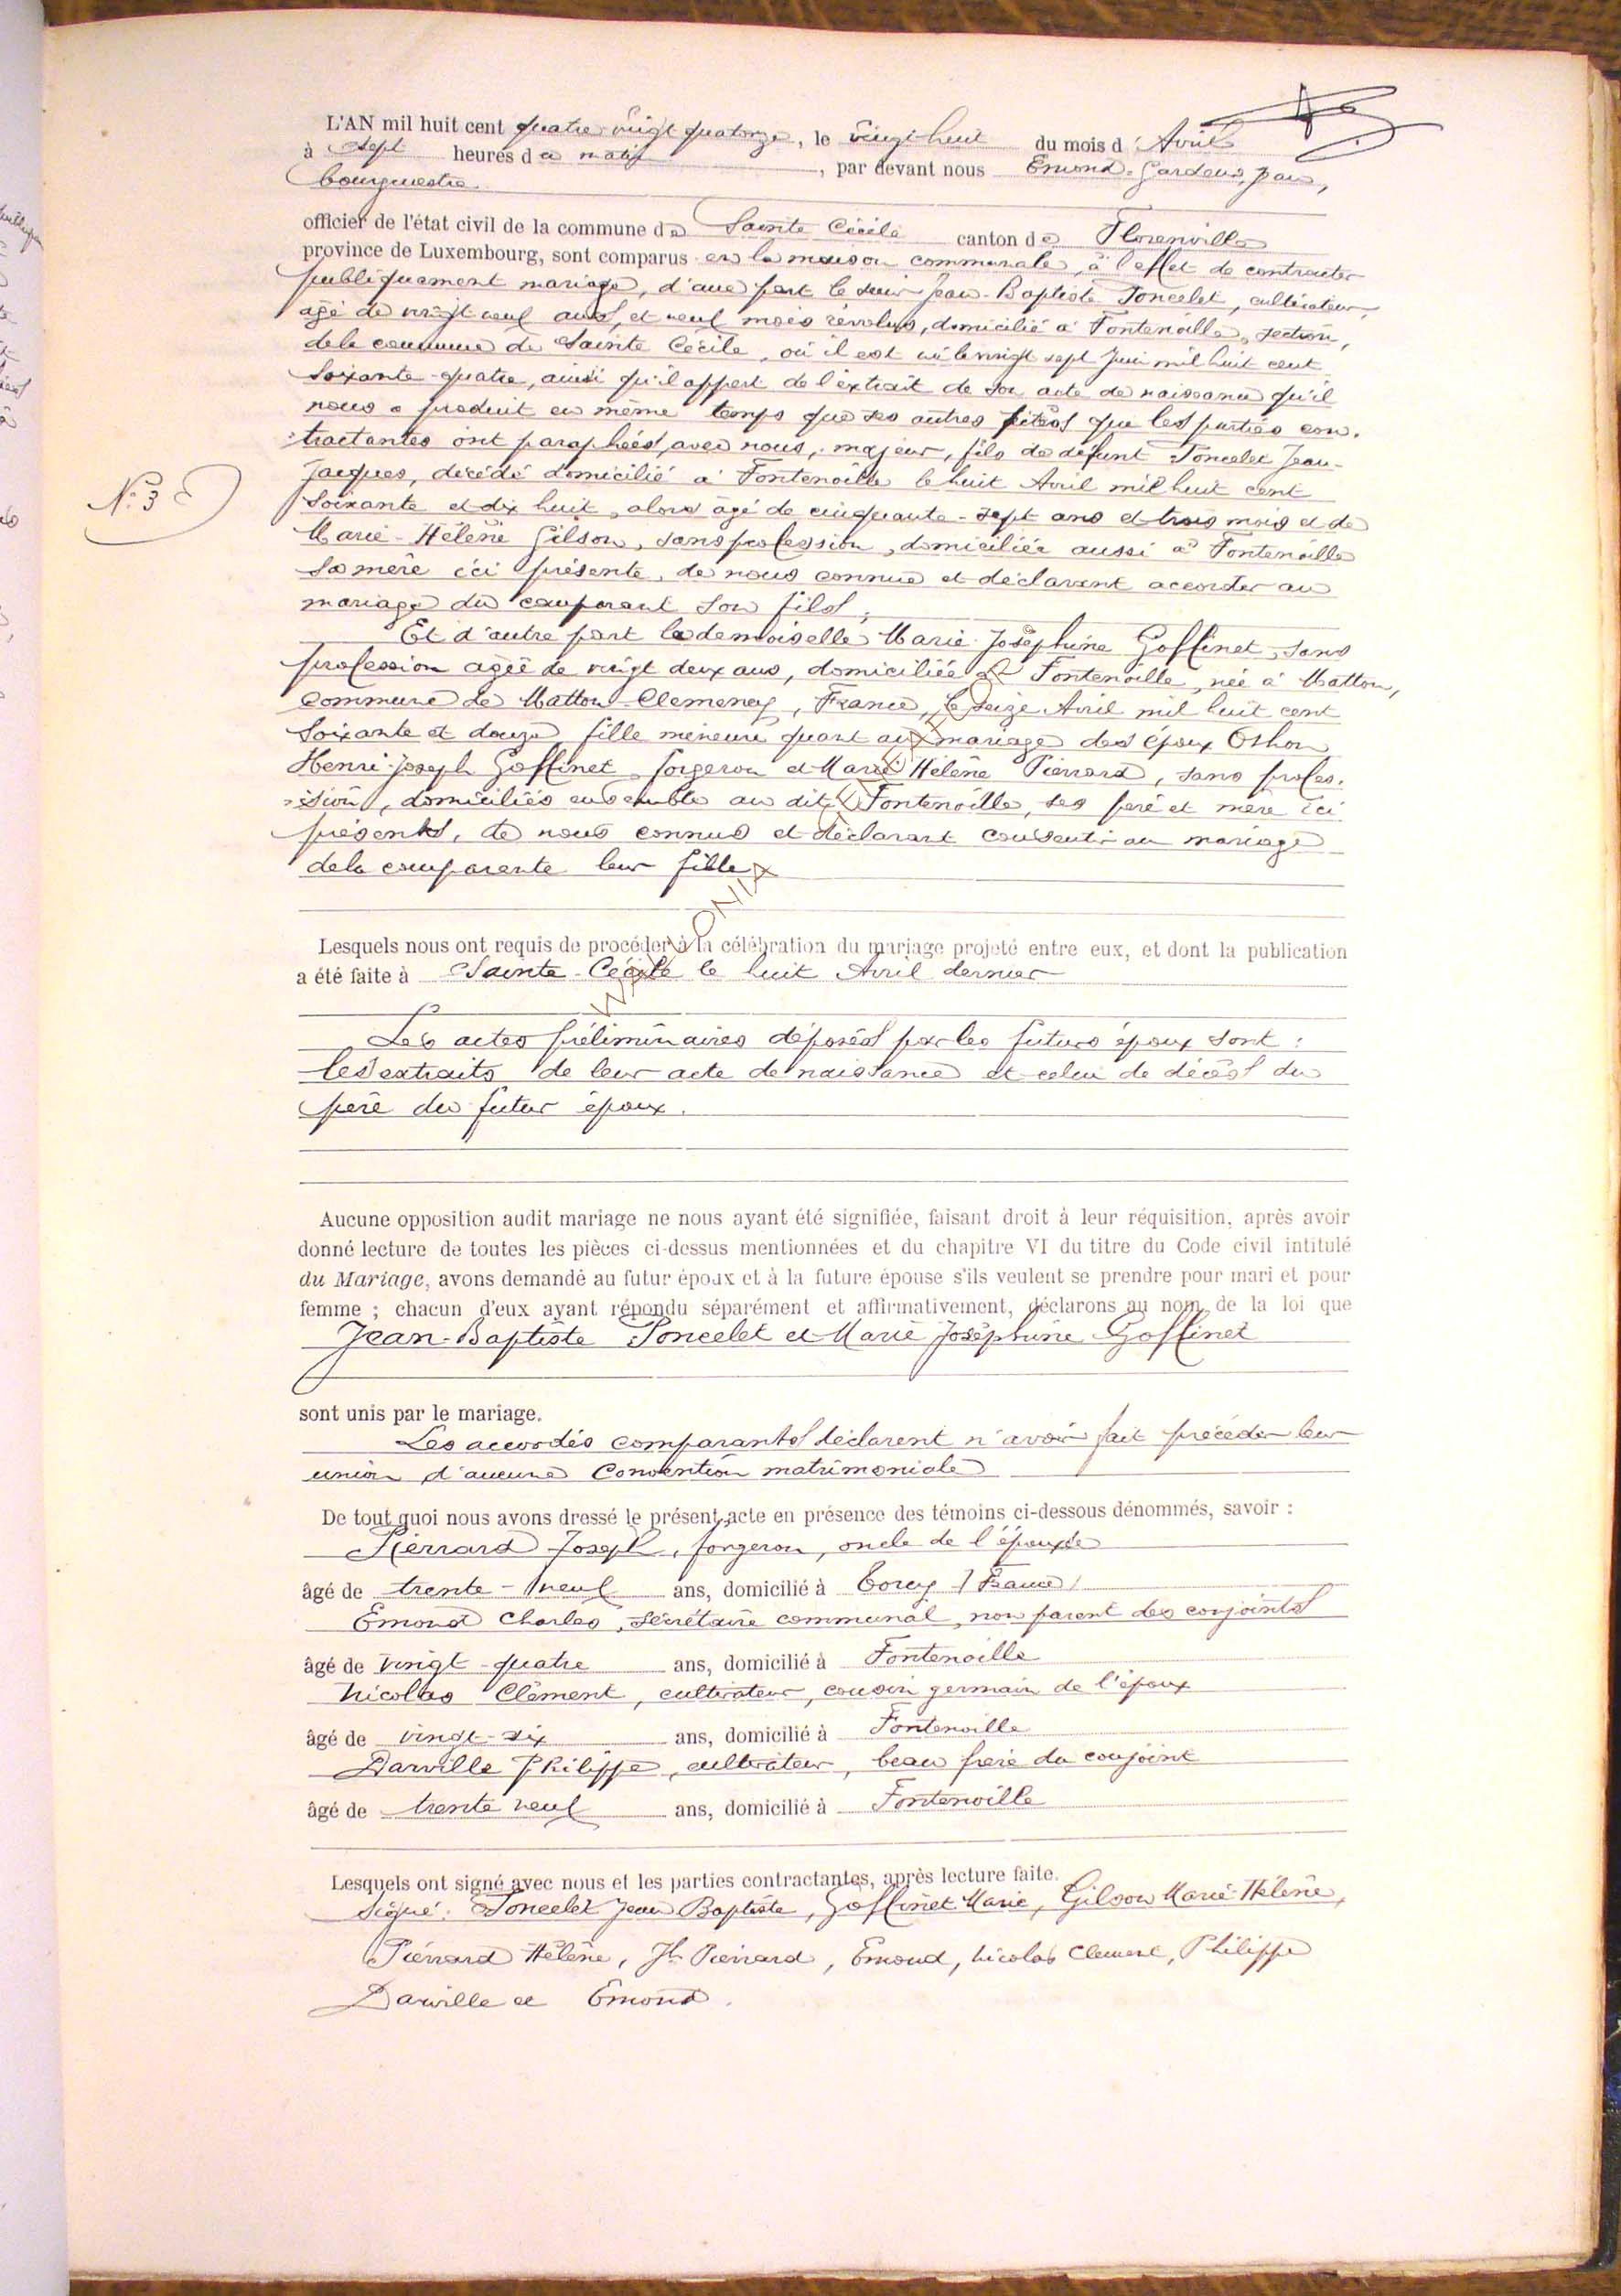 L'AN mil huit cent quatre vingt quatorze, le vingt huit du mois d'Avril
à sept heures du matin, par devant nous Emond-
bourgmestre
officier de l'état civil de la commune de Sainte Cécile canton de Florenville
province de Luxembourg, sont comparus en la maison communale, à l'effet de contracter
publiquement mariage, d'une part le sieur Jean-Baptiste Poncelet, cultivateur,
âgé de vingt neuf ans, et neuf mois révolus, domicilié à Fontenoille, section,
de la commune de Sainte Cécile, où il est né le vingt sept Juin mil huit cent
soixante-quatre, ainsi qu'il appert de l'extrait de son acte de naissance qu'il
nous a produit en même temps que les autres pièces que les parties con-
N° 3
tractantes ont paraphées avec nous, majeur, fils de défunt Poncelet Jean-
Jacques, décédé domicilié à Fontenoille le huit Avril mil huit cent
soixante et dix huit, alors âgé de cinquante-sept ans et trois mois et de
Marie-Hélène Gilson, sans profession, domiciliée aussi à Fontenoille
sa mère ici présente, de nous connue et déclarant accorder au
mariage du comparant son fils;
Et d'autre part la demoiselle Marie-Joséphine Goffinet, sans
profession âgée de vingt deux ans, domiciliée à Fontenoille, née à Matton,
commune de Matton-Clemency, France, le seize Avril mil huit cent
soixante et douze fille mineure quant au mariage des époux Othon
Henri-Joseph Goffinet, forgeron et Marie Hélène Pierrard, sans profes-
sion, domiciliés ensemble au dit Fontenoille, ses père et mère ici
présents, de nous connus et déclarant consentir au mariage
de la comparante leur fille
Lesquels nous ont requis de procéder à la célébration du mariage projeté entre eux, et dont la publication
a été faite à Sainte-Cécile le huit Avril dernier
Les actes préliminaires déposés par les futurs époux sont :
les extraits de leur acte de naissance et celui de décès du
père du futur époux.
Aucune opposition audit mariage ne nous ayant été signifiée, faisant droit à leur réquisition, après avoir
donné lecture de toutes les pièces ci-dessus mentionnées et du chapitre VI du titre du Code civil intitulé
du Mariage, avons demandé au futur époux et à la future épouse s'ils veulent se prendre pour mari et pour
femme ; chacun d'eux ayant répondu séparément et affirmativement, déclarons au nom de la loi que
Jean-Baptiste Poncelet et Marie Joséphine Goffinet
sont unis par le mariage.
Les accordés comparants déclarent n'avoir fait précéder leur
union d'aucune Convention matrimoniale
De tout quoi nous avons dressé le présent acte en présence des témoins ci-dessous dénommés, savoir :
Pierrard Joseph, forgeron, oncle de l'épouse
âgé de trente-neuf ans, domicilié à Torcy (France)
Emond Charles, secrétaire communal, non parent des conjoints
âgé de vingt-quatre ans, domicilié à Fontenoille
Nicolas Clément, cultivateur, cousin germain de l'époux
âgé de vingt-six ans, domicilié à Fontenoille
Darville Philippe, cultivateur, beau frère du conjoint
âgé de trente neuf ans, domicilié à Fontenoille
Lesquels ont signé avec nous et les parties contractantes, après lecture faite.
Signé : Poncelet Jean Baptiste, Goffinet Marie, Gilson Marie-Hélène,
Pierrard Hélène, Jh Pierrard, Emond, Nicolas Clement, Philippe
Darville et Emond.